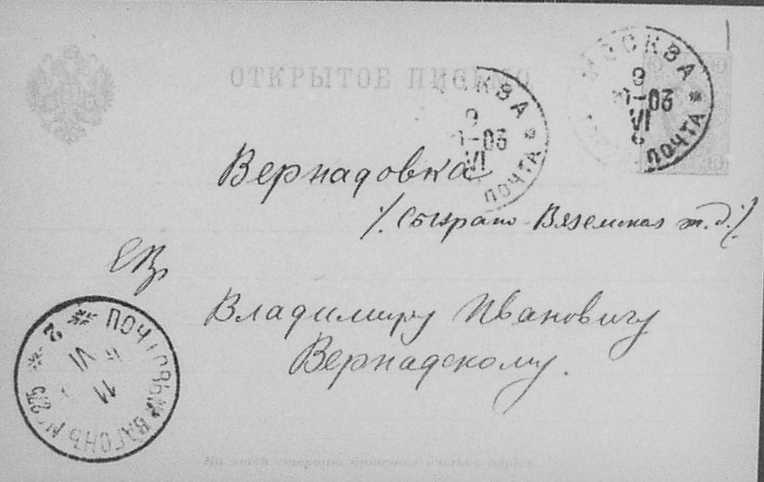 ОТКРЫТОЕ ПИСЬМО
МОСКВА
9
VI
03
ПОЧТА
МОСКВА
9
VI
03
ПОЧТА
Вернадовка
/. Сызрано-Вяземская ж. д./.
ЕВ
Владимиру Ивановичу
Вернадскому.
ПОЧТОВЫЙ ВАГОНЪ
11
VI
2
На этой стороне